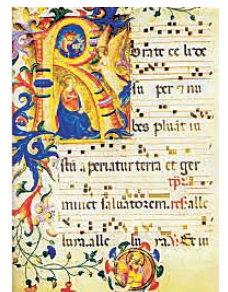 Rorate ce li de
su per & nu
bes pluāt iu
stū aperiatur terra et ger
minet saluatorem. alle
luya. alle lu ya.